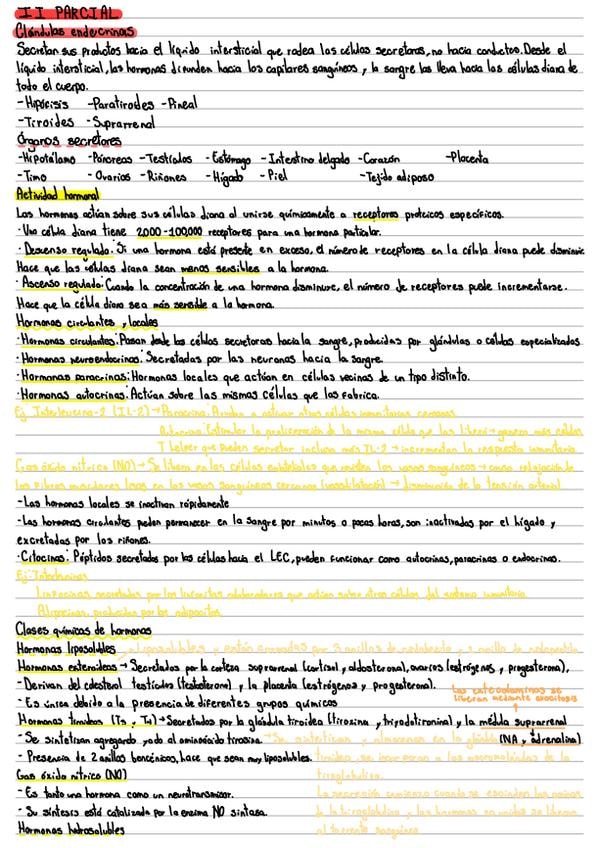 II PARCIAL
Glándulas endocrinas
Secretan sus productos hacia el líquido intersticial que rodea las células secretoras, no hacia conductos. Desde el
líquido intersticial, las hormonas difunden hacia los capilares sanguíneos y la sangre las lleva hacia las células diana de
todo el cuerpo.
-Hipófisis -Paratiroides -Pineal
-Tiroides -Suprarrenal
Órganos secretores
-Hipotálamo -Páncreas -Testículos -Estómago -Intestino delgado -Corazón -Placenta
-Timo -Ovarios -Riñones -Hígado -Piel -Tejido adiposo
Actividad hormonal
Las hormonas actúan sobre sus células diana al unirse químicamente a receptores proteicos específicos.
·Una célula diana tiene 2000-100,000 receptores para una hormona particular.
·Descenso regulado: Si una hormona está presente en exceso, el número de receptores en la célula diana puede disminuir.
Hace que las células diana sean menos sensibles a la hormona.
·Ascenso regulado: Cuando la concentración de una hormona disminuye, el número de receptores puede incrementarse.
Hace que la célula diana sea más sensible a la hormona.
Hormonas circulantes y locales
·Hormonas circulantes: Pasan desde las células secretoras hacia la sangre, producidas por glándulas o células especializadas.
·Hormonas neuroendocrinas: Secretadas por las neuronas hacia la sangre.
·Hormonas paracrinas: Hormonas locales que actúan en células vecinas de un tipo distinto.
·Hormonas autocrinas: Actúan sobre las mismas células que las fabrica.
Ej. Interleucina-2 (IL-2) → Paracrina: Ayudan a activar otras células inmunitarias cercanas.
Autocrina: Estimular la proliferación de la misma célula que las liberó → genera más células
T helper que pueden secretar incluso más IL-2 → incrementan la respuesta inmunitaria
Gas óxido nítrico (NO) → Se libera en las células endoteliales que revisten los vasos sanguíneos → causa relajación de
las fibras musculares lisas en los vasos sanguíneos cercanos (vasodilatación) → disminución de la tensión arterial
-Las hormonas locales se inactivan rápidamente
-Las hormonas circulantes pueden permanecer en la sangre por minutos o pocas horas, son inactivadas por el hígado y
excretadas por los riñones.
·Citocinas: Péptidos secretados por las células hacia el LEC, pueden funcionar como autocrinas, paracrinas o endocrinas.
Ej: Interleucinas
Linfocinas secretadas por los linfocitos colaboradores que actúan sobre otras células del sistema inmunitario.
Adipocinas, producidas por los adipocitos.
Clases químicas de hormonas
Hormonas liposolubles
Hormonas esteroideas → Secretadas por la corteza suprarrenal (cortisol y aldosterona), ovarios (estrógenos y progesterona),
- Derivan del colesterol testículos (testosterona) y la placenta (estrógenos y progesterona).
Las catecolaminas se
liberan mediante exocitosis
- Es única debido a la presencia de diferentes grupos químicos
Hormonas tiroideas (T3 y T4) → Secretadas por la glándula tiroidea (tiroxina y triyodotironina) y la médula suprarrenal
- Se sintetizan agregando yodo al aminoácido tirosina. → Se sintetizan y almacenan en la glándula (NA y adrenalina)
- Presencia de 2 anillos bencénicos, hace que sean muy liposolubles. tiroides, se incorporan a las macromoléculas de la
Gas óxido nítrico (NO) tiroglobulina.
- Es tanto una hormona como un neurotransmisor. La secreción comienza cuando se escinden
- Su síntesis está catalizada por la enzima NO sintasa. de la tiroglobulina y las hormonas se liberan
Hormonas hidrosolubles al torrente sanguíneo